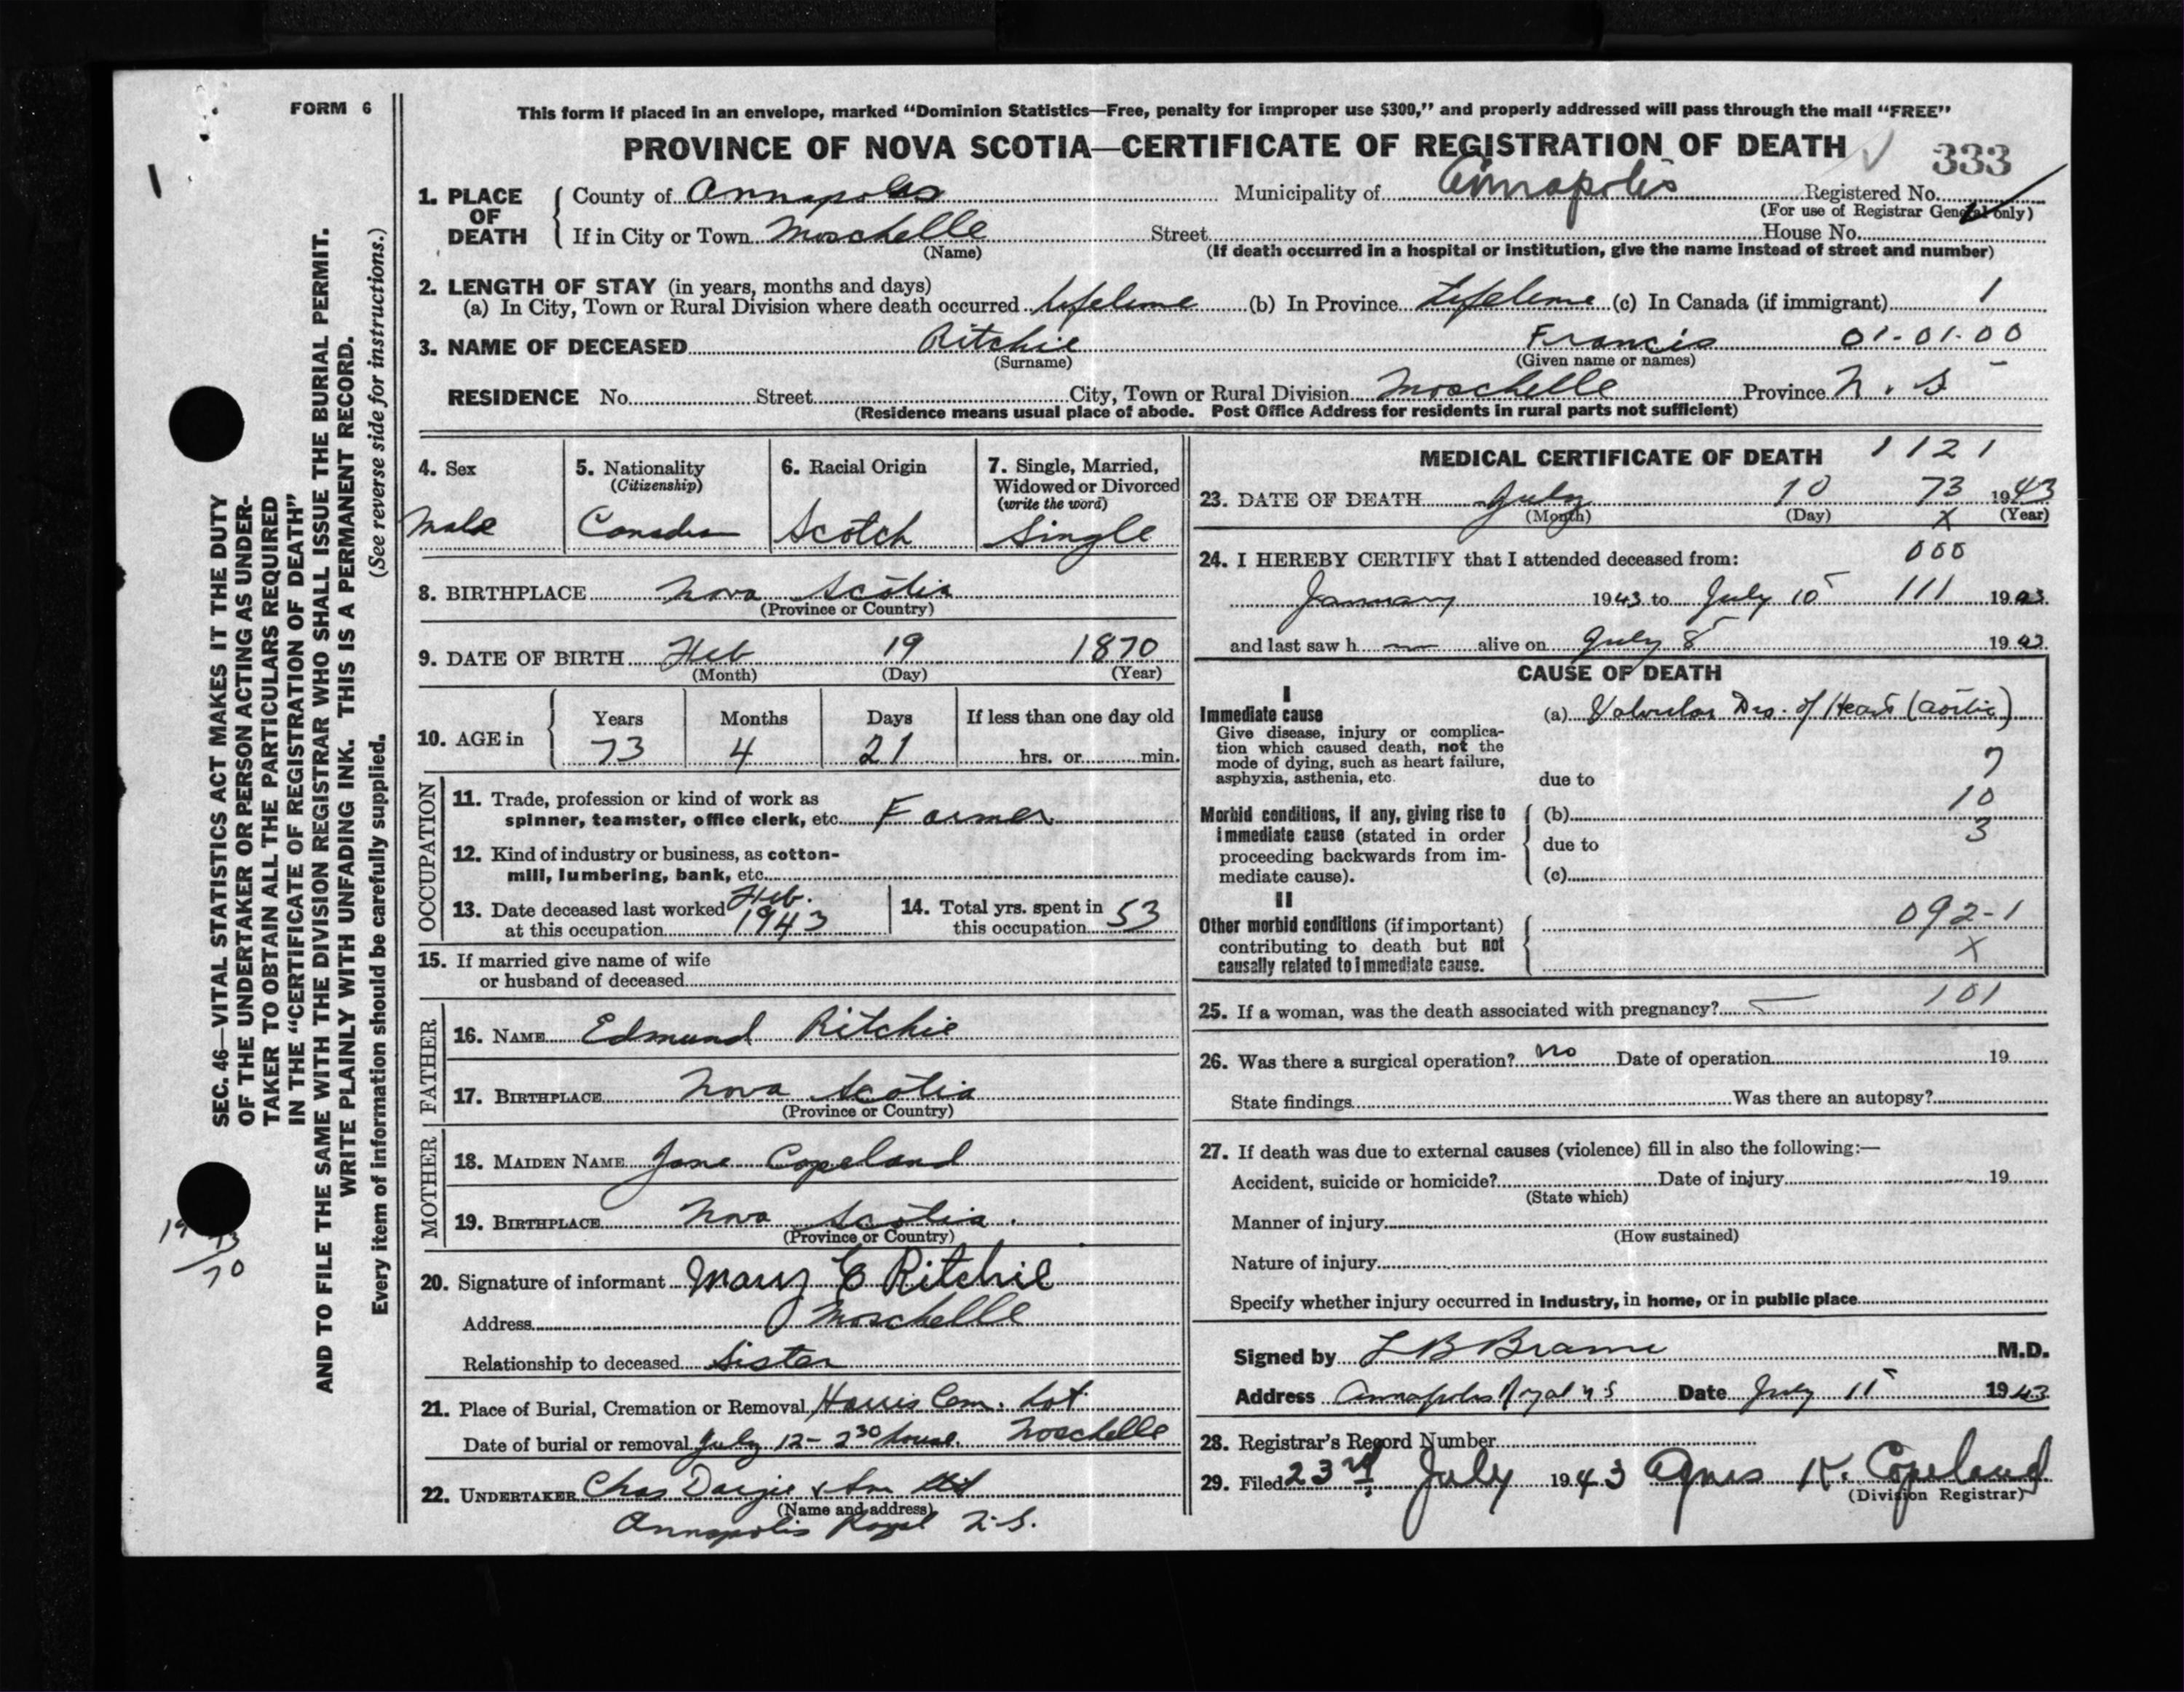 FORM 6
This form if placed in an envelope, marked “Dominion Statistics—Free, penalty for improper use $300,” and properly addressed will pass through the mail “FREE”
PROVINCE OF NOVA SCOTIA—CERTIFICATE OF REGISTRATION OF DEATH
333
1. PLACE OF DEATH
County of Annapolis Municipality of Annapolis Registered No.
(For use of Registrar General only)
If in City or Town Moschelle Street House No.
(Name) (If death occurred in a hospital or institution, give the name instead of street and number)
2. LENGTH OF STAY (in years, months and days)
(a) In City, Town or Rural Division where death occurred Lifetime (b) In Province Lifetime (c) In Canada (if immigrant) 1
3. NAME OF DECEASED Ritchie Francis 01-01-00
(Surname) (Given name or names)
RESIDENCE No. Street City, Town or Rural Division Moschelle Province N. S
(Residence means usual place of abode. Post Office Address for residents in rural parts not sufficient)
4. Sex
Male
5. Nationality
(Citizenship)
Canadian
6. Racial Origin
Scotch
7. Single, Married,
Widowed or Divorced
(write the word)
Single
8. BIRTHPLACE Nova Scotia
(Province or Country)
9. DATE OF BIRTH Feb 19 1870
(Month) (Day) (Year)
10. AGE in
Years Months Days If less than one day old
73 4 21 hrs. or min.
OCCUPATION
11. Trade, profession or kind of work as
spinner, teamster, office clerk, etc. Farmer
12. Kind of industry or business, as cotton-
mill, lumbering, bank, etc.
13. Date deceased last worked Feb.
at this occupation 1943
14. Total yrs. spent in
this occupation 53
15. If married give name of wife
or husband of deceased
FATHER
16. NAME Edmund Ritchie
17. BIRTHPLACE Nova Scotia
(Province or Country)
MOTHER
18. MAIDEN NAME Jane Copeland
19. BIRTHPLACE Nova Scotia.
(Province or Country)
20. Signature of informant Mary E Ritchie
Address Moschelle
Relationship to deceased Sister
21. Place of Burial, Cremation or Removal Harris Cem. Lot
Date of burial or removal July 12 - 2 30 house. Moschelle
22. UNDERTAKER Chas Dargie & Son Ltd
(Name and address)
Annapolis Royal N.S.
MEDICAL CERTIFICATE OF DEATH 1121
23. DATE OF DEATH July 10 73 1943
(Month) (Day) X (Year)
24. I HEREBY CERTIFY that I attended deceased from: 000
January 1943 to July 10 111 1943
and last saw h m alive on July 8 1943
CAUSE OF DEATH
I
Immediate cause
Give disease, injury or complica-
tion which caused death, not the
mode of dying, such as heart failure,
asphyxia, asthenia, etc.
(a) Valvular Dis. of Heart (aortic)
7
due to
10
Morbid conditions, if any, giving rise to
immediate cause (stated in order
proceeding backwards from im-
mediate cause).
(b)
3
due to
(c)
II
Other morbid conditions (if important)
contributing to death but not
causally related to immediate cause.
092-1
X
101
25. If a woman, was the death associated with pregnancy?
26. Was there a surgical operation? no Date of operation 19
State findings Was there an autopsy?
27. If death was due to external causes (violence) fill in also the following:—
Accident, suicide or homicide? Date of injury 19
(State which)
Manner of injury
(How sustained)
Nature of injury
Specify whether injury occurred in industry, in home, or in public place
Signed by L B Braine M.D.
Address Annapolis Royal N S Date July 11 1943
28. Registrar's Record Number
29. Filed 23rd July 1943 Agnes K. Copeland
(Division Registrar)
SEC. 46—VITAL STATISTICS ACT MAKES IT THE DUTY
OF THE UNDERTAKER OR PERSON ACTING AS UNDER-
TAKER TO OBTAIN ALL THE PARTICULARS REQUIRED
IN THE “CERTIFICATE OF REGISTRATION OF DEATH”
AND TO FILE THE SAME WITH THE DIVISION REGISTRAR WHO SHALL ISSUE THE BURIAL PERMIT.
WRITE PLAINLY WITH UNFADING INK. THIS IS A PERMANENT RECORD.
Every item of information should be carefully supplied. (See reverse side for instructions.)